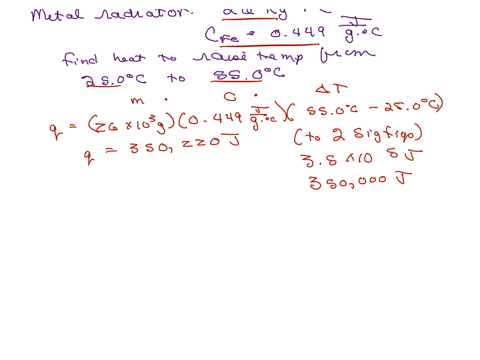 Metal radiator.
C_Fe = 0.449 J/g·°C
find heat to raise temp from
25.0°C to 55.0°C
m · C · ΔT
q = (26 x 10³g)(0.449 J/g·°C)(55.0°C - 25.0°C)
q = 350,220 J (to 2 sigfigs)
3.5 x10 5 J
350,000 J